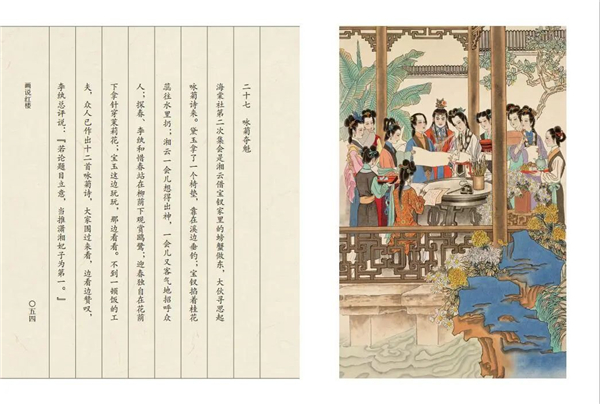 二十七　咏菊夺魁
海棠社第二次集会是湘云借宝钗家里的螃蟹做东，大伙寻思起
咏菊诗来。黛玉拿了一个椅垫，靠在溪边垂钓；宝钗掐着桂花
蕊往水里扔；湘云一会儿想得出神，一会儿又客气地招呼众
人；探春、李纨和惜春站在柳荫下观赏鸥鹭；迎春独自在花荫
下拿针穿茉莉花；宝玉这边玩玩，那边看看。不到一顿饭的工
夫，众人已作出十二首咏菊诗，大家围过来看，边看边赞叹，
李纨总评说：“若论题目立意，当推潇湘妃子为第一。”
画说红楼
〇五四